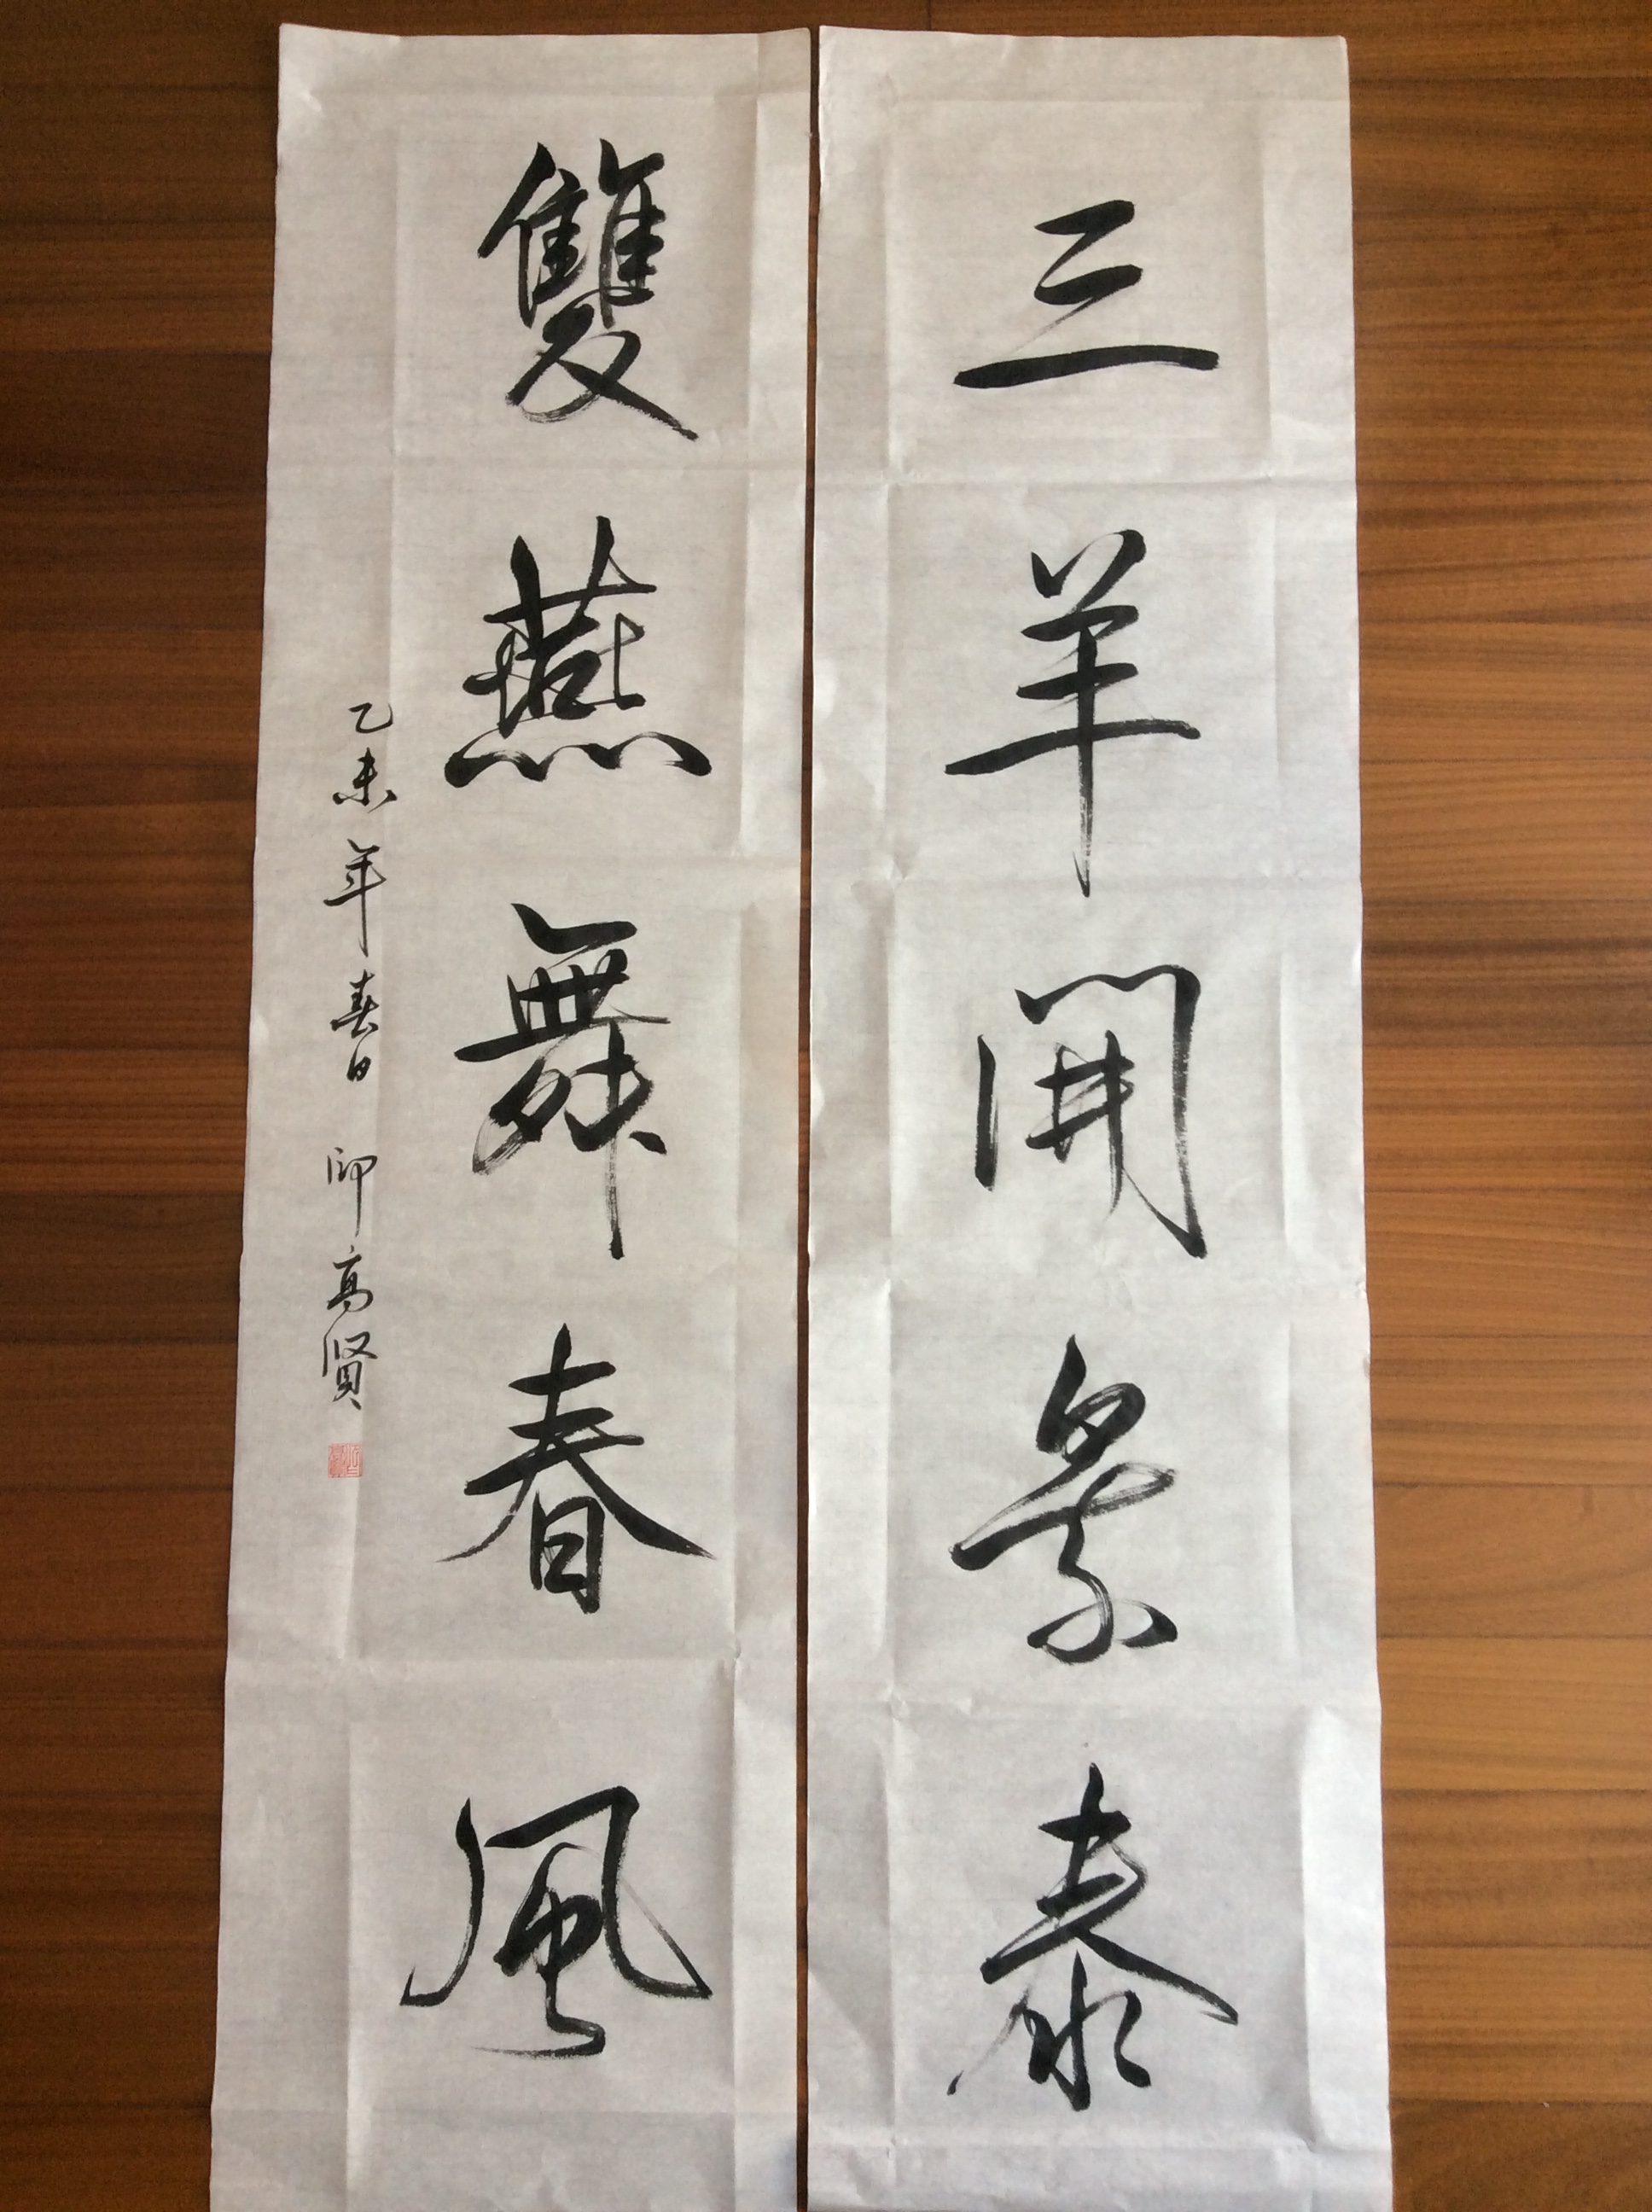 三羊開景泰
雙燕舞春風
乙未年春日 印高賢